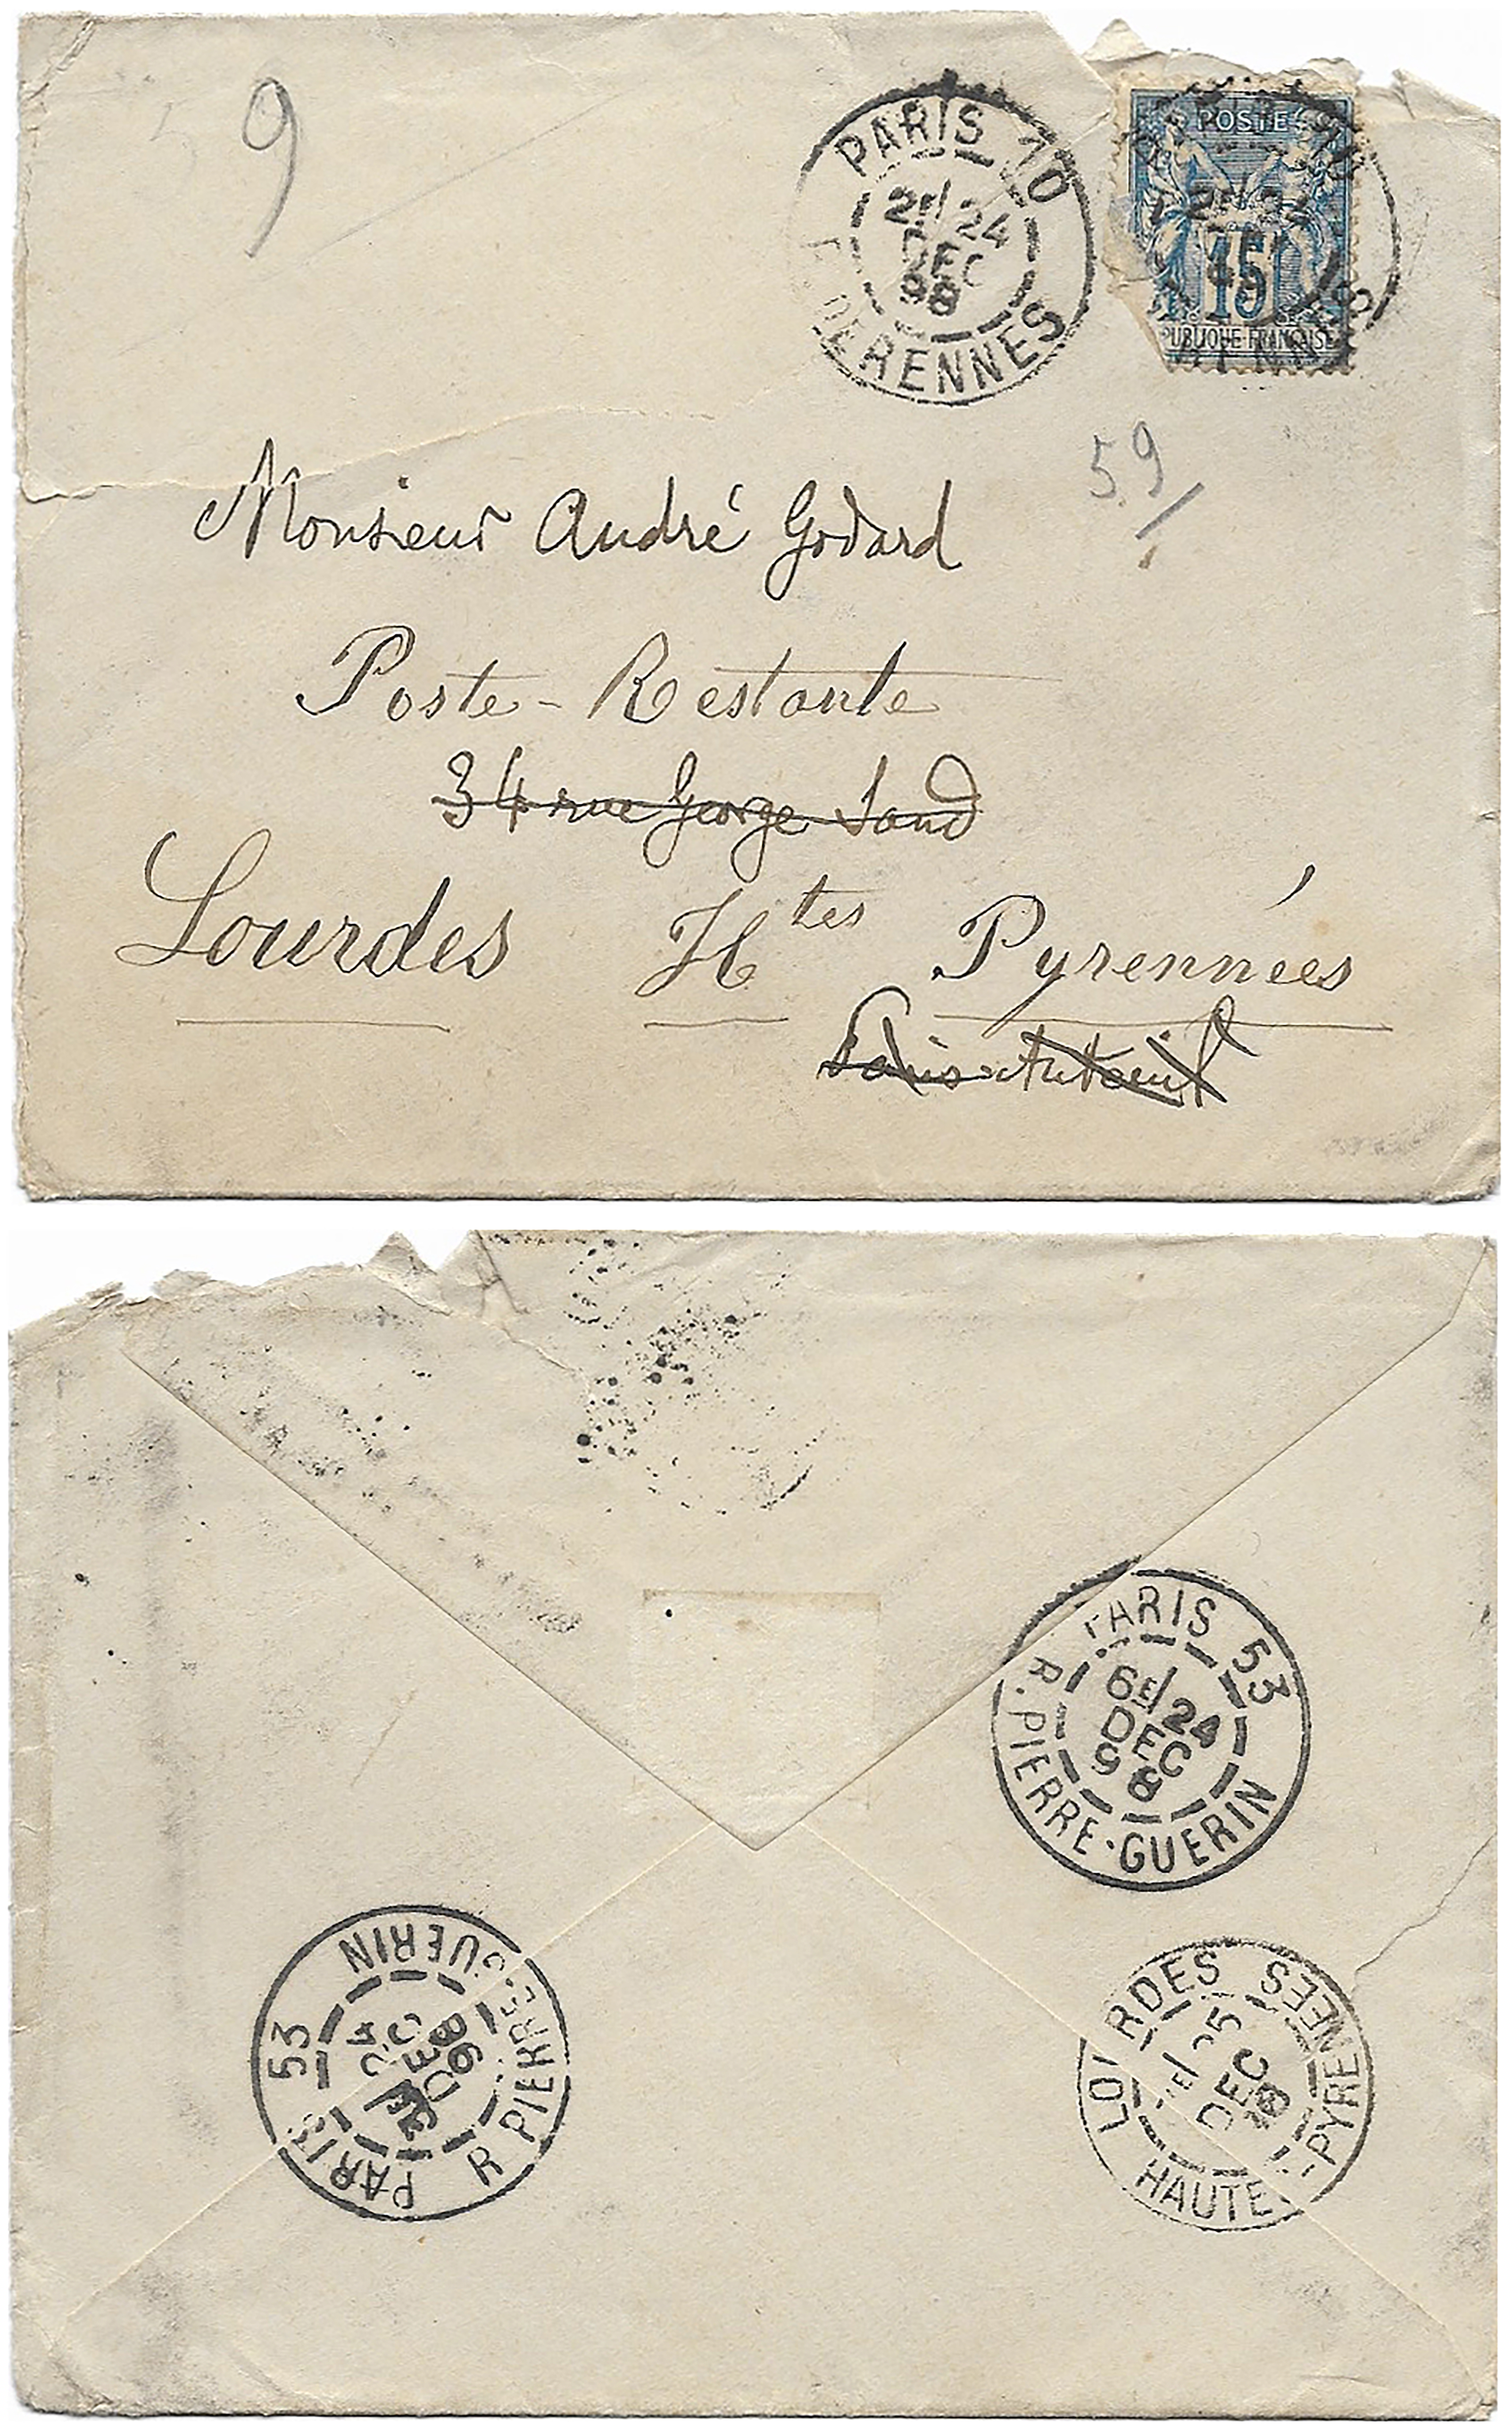 9
PARIS 10
2E/24
DEC
98
DE RENNES
POSTES
15
PUBLIQUE FRANÇAISE
59
Monsieur André Godard
Poste-Restante
34 rue George Sand
Lourdes Htes Pyrennées
Paris-Auteuil
PARIS 53
6E/24
DEC
98
R. PIERRE-GUERIN
PARIS 53
24
DEC
98
R PIERRE-GUERIN
LOURDES
25
DEC
98
HAUTES-PYRENEES